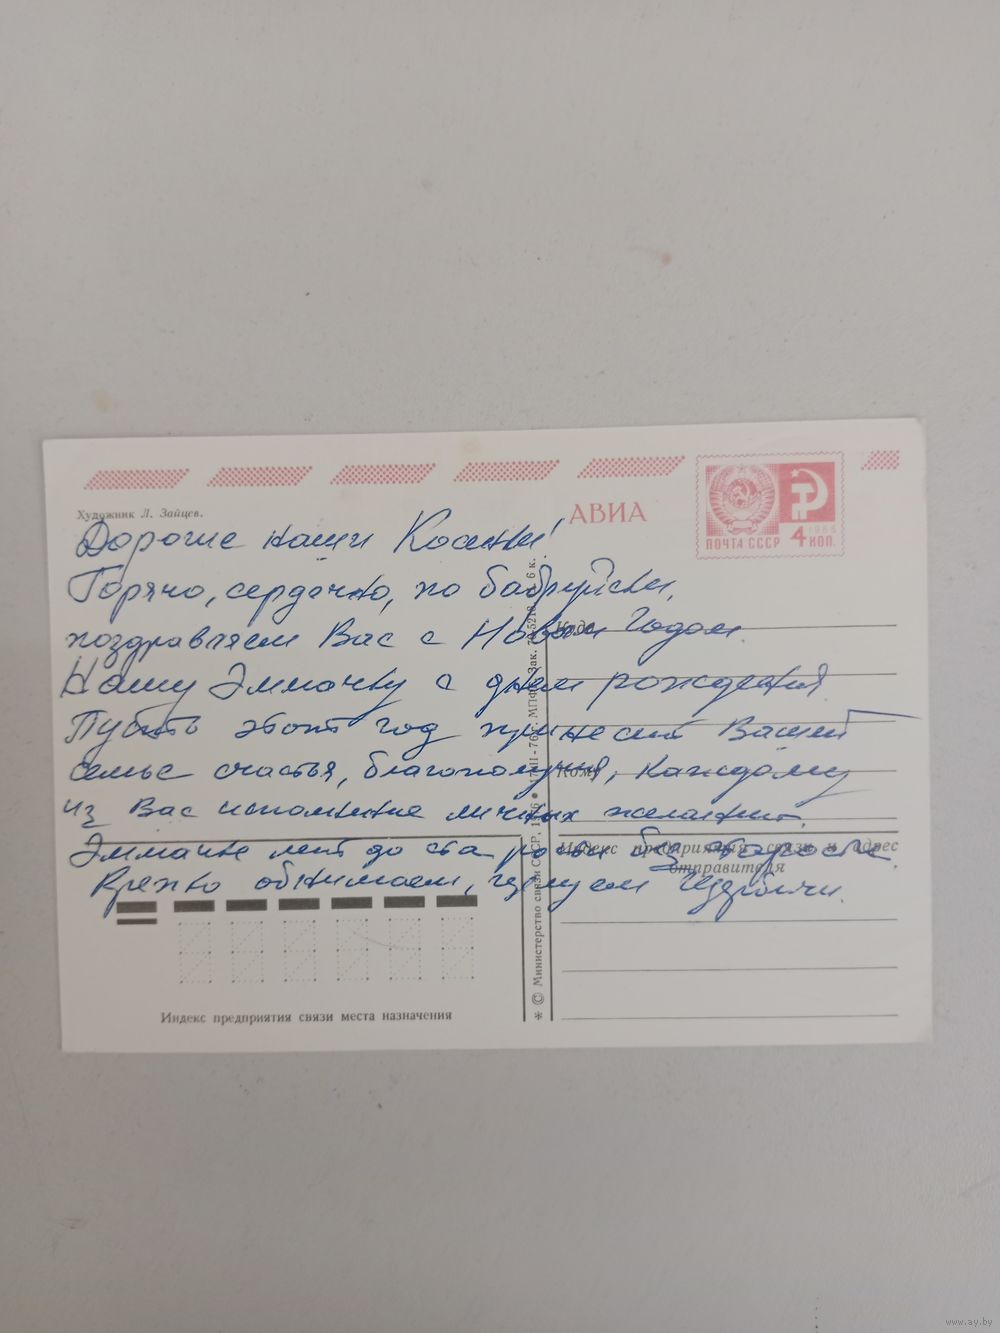 Художник Л. Зайцев.
АВИА
ПОЧТА СССР 4 КОП.
1966
Дорогие наши
Горячо, сердечно, по бабруйски,
поздравляем Вас с Новым Годом
Куда
Нашу Эммочку с днём рождения
Пусть этот год принесёт Вашей
семье счастья, благополучия, каждому
Кому
из Вас исполнение личных желаний.
Эммочке лет до ста расти без старости
Индекс предприятия связи и адрес
отправителя
Крепко обнимаем, целуем
Индекс предприятия связи места назначения
* © Министерство связи СССР, МПФГ. Зак. 6 к.
www.ay.by